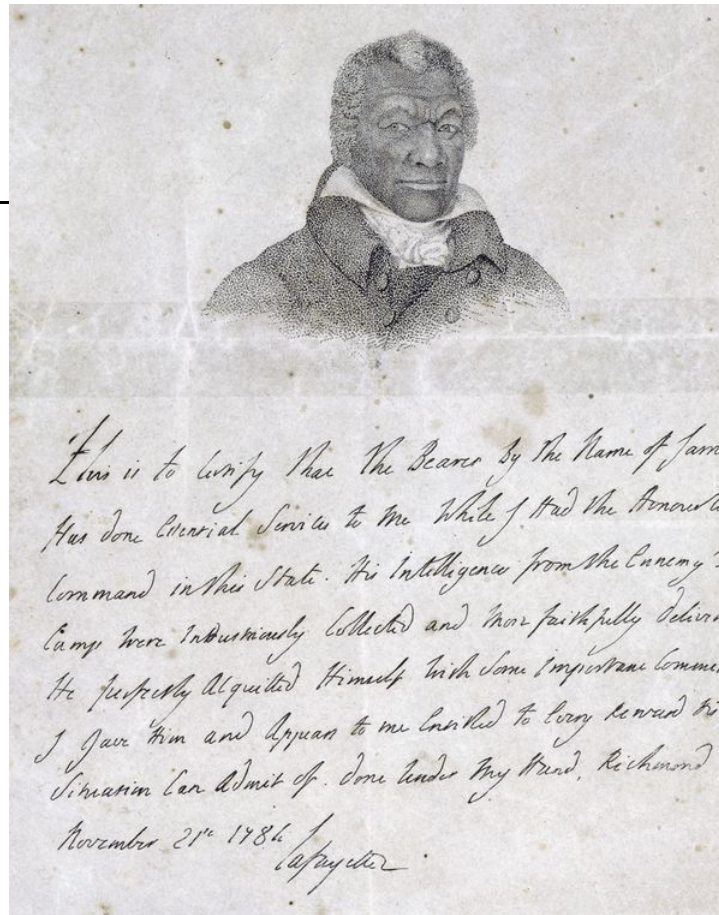 This is to Certify that the Bearer By the Name of Jam
Has done Essential Services to me While I Had the Honour to
Command in this State. His Intelligences from the Ennemy's
Camp were Industriously Collected and Most faithfully deliver
He perfectly Acquitted Himself with Some important Comm
I Gave Him and Appears to me Entitled to Every Reward his
Situation Can Admit of. Done Under my Hand, Richmond
November 21st 1784
Lafayette